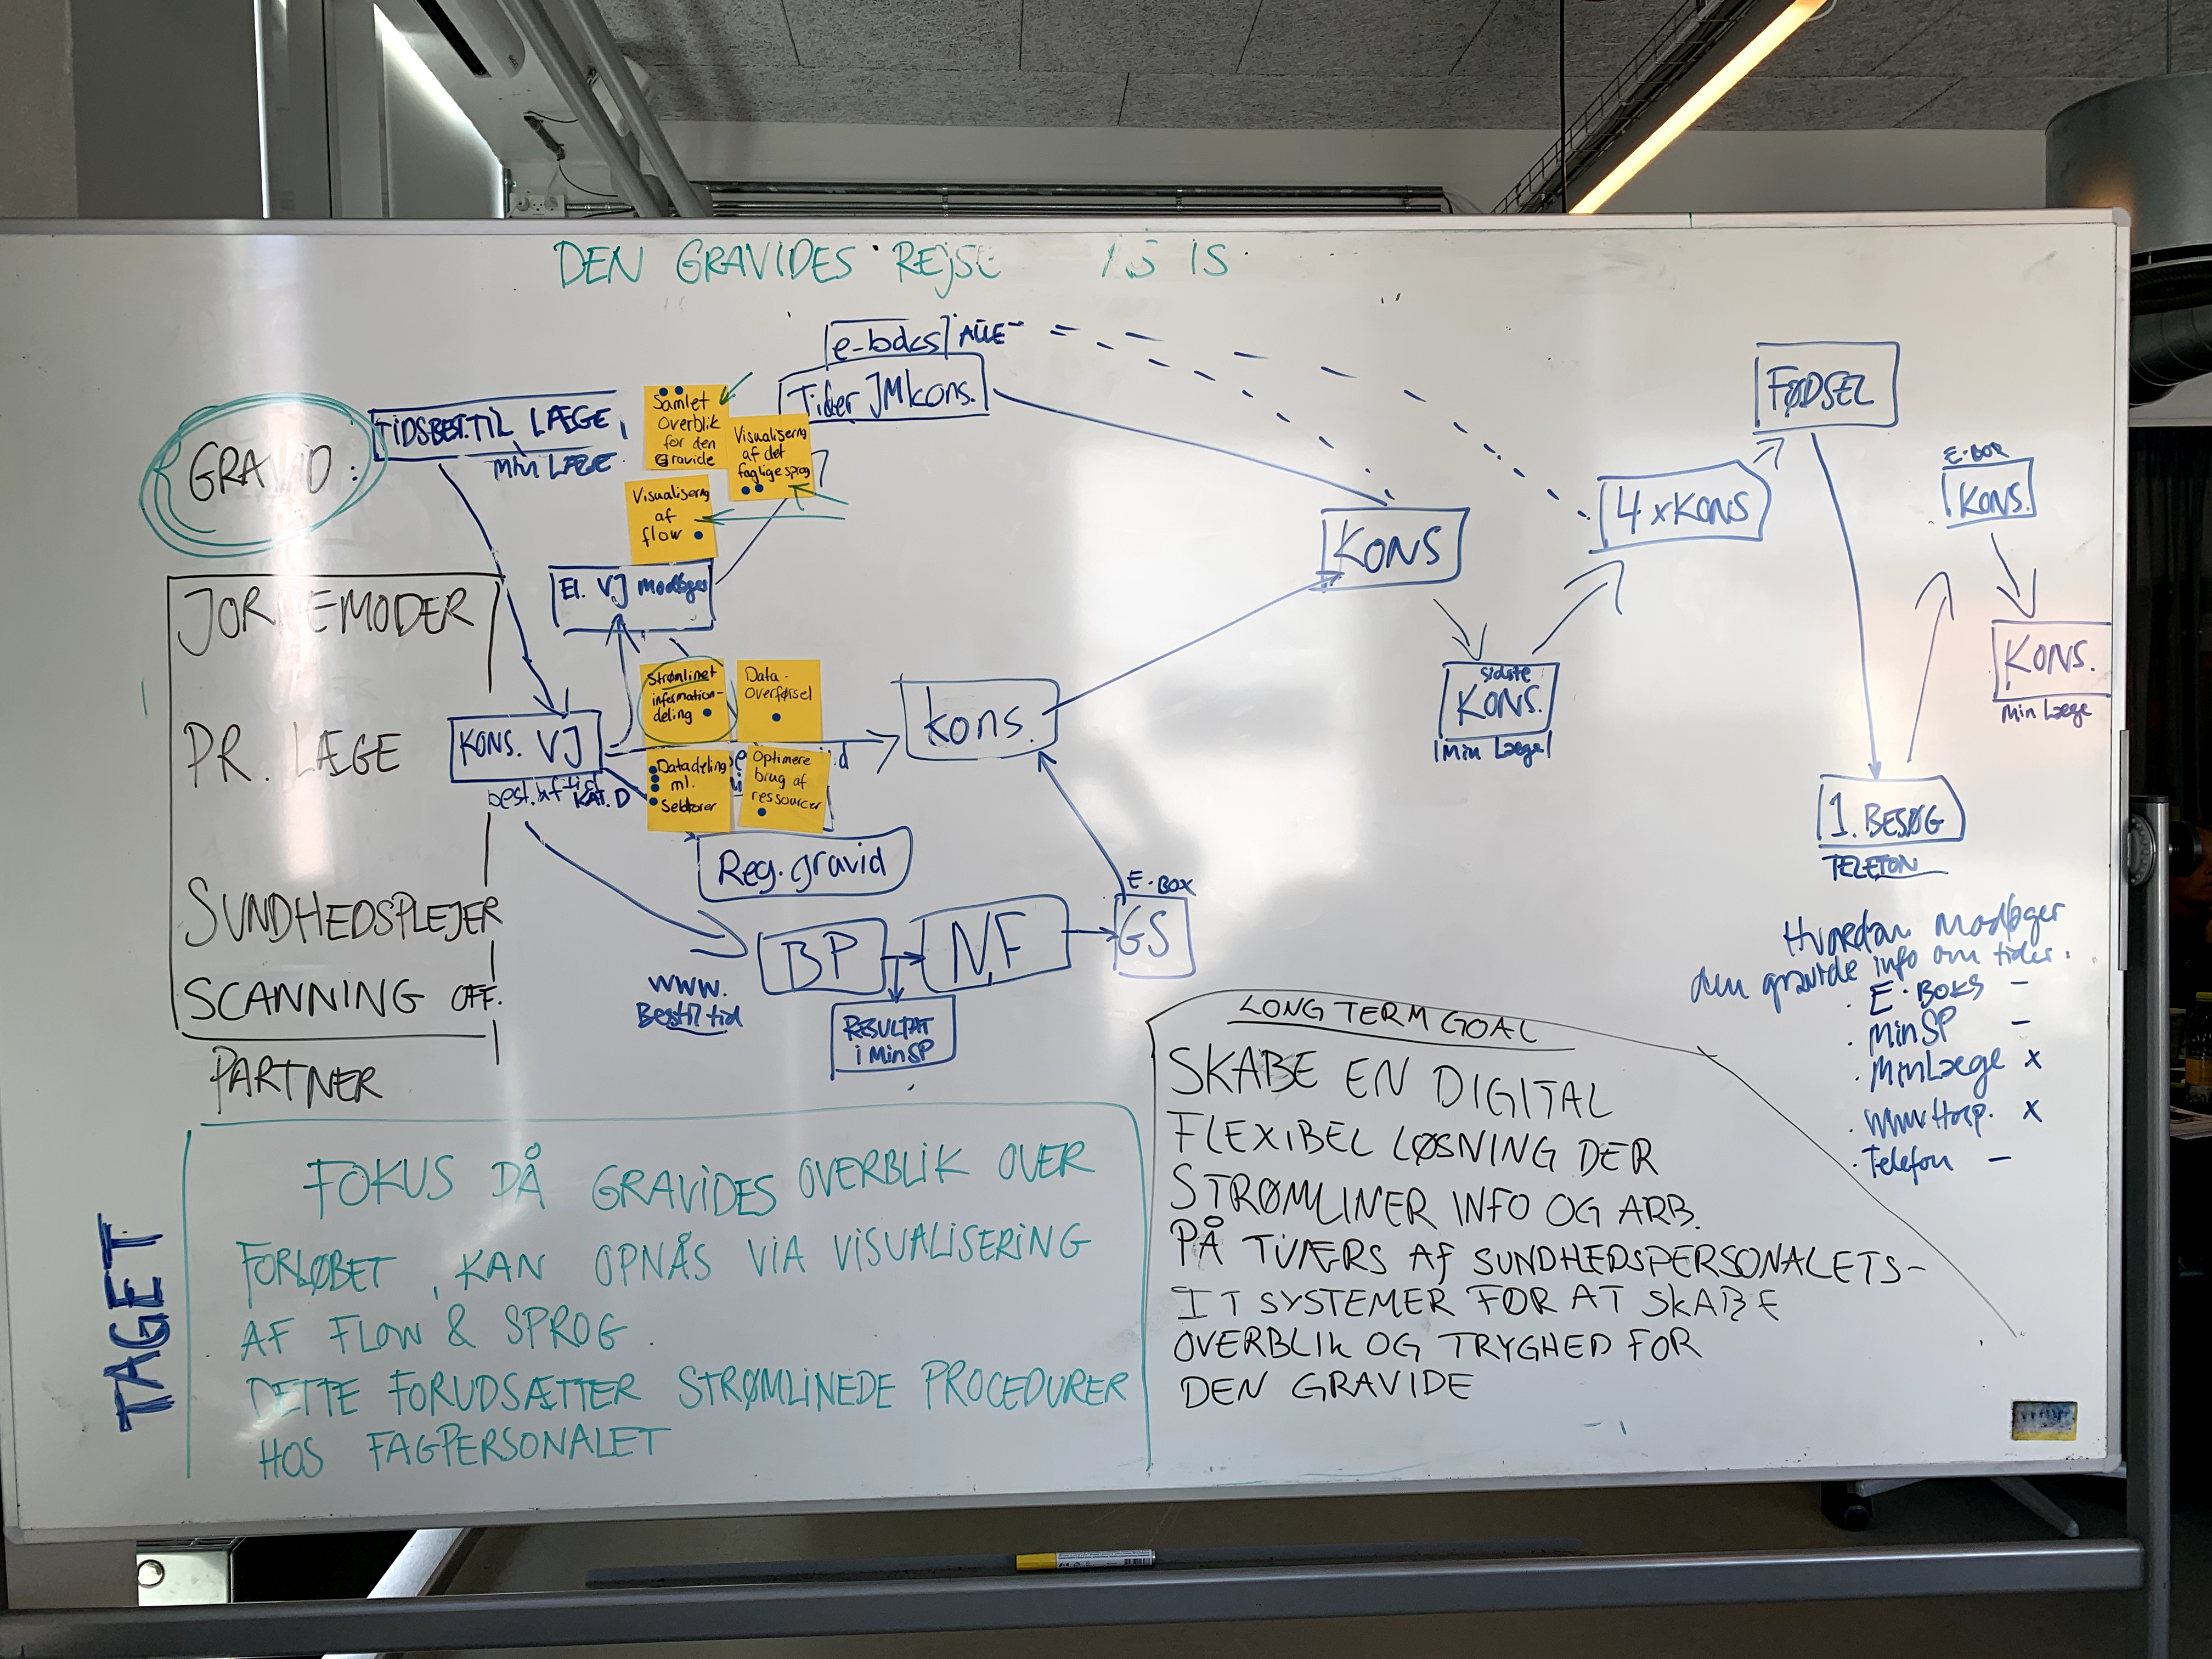 DEN GRAVIDES REJSE AS IS
e-boks ALLE
Tider JMkons.
GRAVID:
TIDSBEST.TIL LÆGE,
Min LÆGE
Samlet
Overblik
for den
Gravide
Visualisering
af det
faglige sprog
Visualisering
af
flow
El. VJ modtages
FØDSEL
E-BOX
KONS.
4 x KONS
KONS
KONS.
Min Læge
sidste
KONS.
Min Læge
JORDEMODER
PR. LÆGE
SUNDHEDSPLEJER
SCANNING OFF.
PARTNER
KONS. VJ
best.
KAT. D
Strømlinet
information-
deling
Data-
overførsel
Datadeling
ml.
Sektorer
Optimere
brug af
ressourcer
kons.
Reg. gravid
BP
NF
E-BOX
GS
www.
Bestil tid
RESULTAT
i MinSP
1. BESØG
TELEFON
Hvordan modtager
den gravide info om tider.
· E-BOKS –
· MinSP –
· MinLæge x
· www.Hosp. x
· Telefon –
LONG TERM GOAL
SKABE EN DIGITAL
FLEXIBEL LØSNING DER
STRØMLINER INFO OG ARB.
PÅ TVÆRS AF SUNDHEDSPERSONALETS-
IT SYSTEMER FOR AT SKABE
OVERBLIK OG TRYGHED FOR
DEN GRAVIDE
TAGET
FOKUS PÅ GRAVIDES OVERBLIK OVER
FORLØBET, KAN OPNÅS VIA VISUALISERING
AF FLOW & SPROG.
DETTE FORUDSÆTTER STRØMLINEDE PROCEDURER
HOS FAGPERSONALET